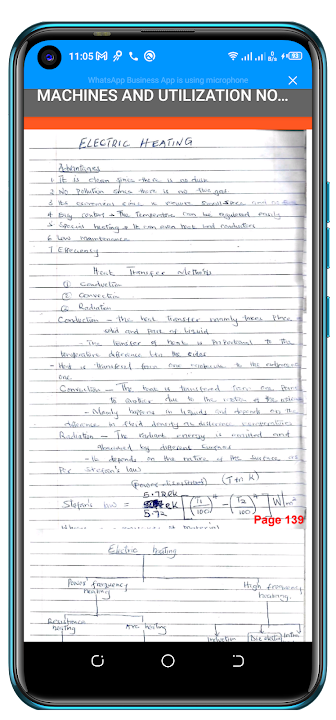 11:05
WhatsApp Business App is using microphone
MACHINES AND UTILIZATION NO...
ELECTRIC HEATING
Advantages
1. It is clean since there is no dust
2. No pollution since there is no flue gas
3. It's economical since it
4. Easy control → The temperature can be regulated easily
5. Special heating → It can even heat bad conductors
6. Low maintenance
7. Efficiency
Heat Transfer methods
① Conduction
② Convection
③ Radiation
Conduction - The heat transfer mainly takes place
solid and part of liquid
- The transfer of heat is proportional to the
temperature difference btw the edges
- Heat is transferred from one molecule to the
one.
Convection - The heat is transferred from one part
to another due to the
- Mainly happens in liquids and depends on the
difference in fluid density at different temperatures
Radiation - The radiant energy is emitted and
absorbed by different surfaces
- It depends on the nature of the surface as
Per Stefan's law
(T in K)
5.72ek
Stefan's law = [(T1/100)⁴ - (T2/100)⁴] W/m²
5.72
Page 139
material
Electric heating
Power frequency
heating
High frequency
heating.
Resistance
heating
Arc heating
Induction
Dielectric
Infra